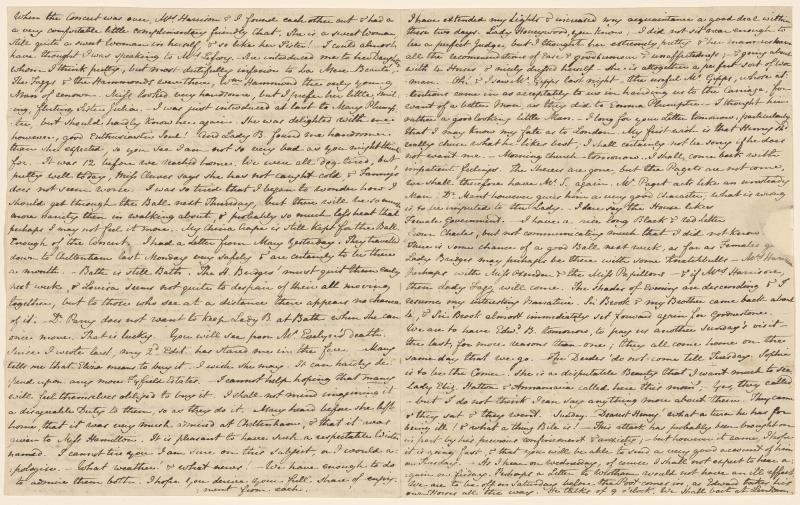 When the Concert was over, Mrs Harrison & I found each other out & had a
a very comfortable little complimentary friendly Chat. She is a sweet Woman,
still quite a sweet Woman in herself, & so like her Sister! I could almost
have thought I was speaking to Mrs Lefroy. She introduced me to her Daughter,
whom I think pretty, but most dutifully inferior to La Mere Beauté,
The Faggs & the Hammonds were there, Wm Hammond the only young
Man of renown. Miss looked very handsome, but I prefer her little, smil-
ing, flirting Sister Julia. I was just introduced at last to Mary Plump-
tre, but should hardly know her again. She was delighted with me
however, good Enthusiastic Soul! And Lady B. found me handsomer
than she expected, so you see I am not so very bad as you might think
for. It was 12 before we reached home. We were all dog-tired, but
pretty well today, Miss Clewes says she has not caught cold, & Fanny's
does not seem worse. I was so tired that I began to wonder how I
should get through the Ball next Thursday, but there will be so much
more variety then in walking about, & probably so much less heat that
perhaps I may not feel it more. My China Crape is still kept for the Ball.
Enough of the Concert. I had a Letter from Mary Yesterday. They travelled
down to Cheltenham last Monday very safely & are certainly to be there
a month. Bath is still Bath. The H. Bridges' must quit them early
next week, & Louisa seems not quite to despair of their all moving
together, but to those who see at a distance there appears no chance
of it. Dr Parry does not want to keep Lady B. at Bath when she can
once move. That is lucky. You will see poor Mr Evelyn's death.
Since I wrote last, my 2d Edit. has stared me in the face. Mary
tells me that Eliza means to buy it. I wish she may. It can hardly de-
pend upon any more Fyfield Estates. I cannot help hoping that many
will feel themselves obliged to buy it. I shall not mind imagining it
a disagreable Duty to them, so as they do it. Mary heard before she left
home, that it was very much admired at Cheltenham, & that it was
given to Miss Hamilton. It is pleasant to have such a respectable Writer
named. I cannot tire you I am sure on this subject, or I would a-
pologise. What weather! & what news! We have enough to do
to admire them both. I hope you derive your full share of enjoy-
ment from each.
I have extended my Lights & increased my acquaintance a good deal within
these two days. Lady Honeywood, you know; I did not sit near enough to
be a perfect Judge, but I thought her extremely pretty & her manners have
all the recommendations of ease & goodhumour & unaffectedness; & going about
with 4 Horses, & nicely dressed herself she is altogether a perfect sort of Wo-
man. Oh! & I saw Mr Gipps last night the useful Mr Gipps, whose at-
tentions came in as acceptably to us in handing us to the Carriage, for
want of a better Man, as they did to Emma Plumptre. I thought him
rather a good looking little Man. I long for your Letter tomorrow, particularly
that I may know my fate as to London. My first wish is that Henry shd
really chuse what he likes best; I shall certainly not be sorry if he does
not want me. Morning church tomorrow. I shall come back with
impatient feelings. The Sherers are gone, but the Pagets are not come,
we shall therefore have Mr S. again. Mr Paget acts like an unsteady
Man. Dr Mant however gives him a very good character; what is wrong
is to be imputed to the Lady. I dare say the House likes
Female Government. I have a nice long Black & red Letter
from Charles, but not communicating much that I did not know
There is some chance of a good Ball next week, as far as Females go
Lady Bridges may perhaps be there with some Knatchbulls Mrs Harrison
perhaps with Miss Oxenden & the Miss Papillons & if Mrs Harrison,
then Lady Fagg will come. The shades of Evening are descending & I
resume my interesting Narrative. Sir Brook & my Brother came back about
4, & Sir Brook almost immediately set forward again for Goodnestone.
We are to have Edwd B. tomorrow, to pay us another Sunday's visit
the last, for more reasons than one; they all come home on the
same day that we go. The Deedes' do not come till Tuesday. Sophia
is to be the Comer. She is a disputable Beauty that I want much to see.
Lady Eliz. Hatton & Annamaria called here this morng; Yes, they called,
but I do not think I can say anything more about them. They came
& they sat & they went. Sunday. Dearest Henry! what a turn he has for
being ill! & what a thing Bile is! This attack has probably been brought on
in part by his previous confinement & anxiety; but however it came, I hope
it is going fast, & that you will be able to send a very good account of him
on Tuesday. As I hear on Wednesday, of course I shall not expect to hear a-
gain on Friday. Perhaps a Letter to Wrotham would not have an ill effect.
We are to be off on Saturday before the Post comes in, as Edward takes his
own Horses all the way. He talks of 9 o'clock. We shall bait at Lenham.